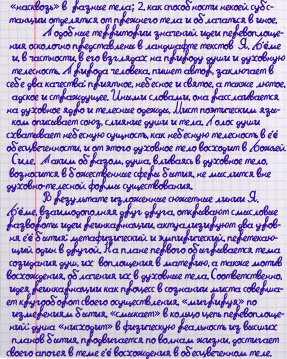 «насквозь» в разные тела; 2. как способности некоей субс-
танции отделяться от прежнего тела и облагаться в иное.
Подобные территории значений идеи перевоплоще-
ния осколочно представлены в ландшафте текстов Я. Бёме
и, в частности, в его взглядах на природу души и духовную
телесность. Природа человека, пишет автор, заключает в
себе два качества: приятное, небесное и святое, а также лютое,
адское и страждущее. Иными словами, она расслаивается
на духовное ядро и телесные одежды. Шаг поэтическим язы-
ком описывает союз, слияние души и тела. Голос души
схватывает небесную сущность, как небесную телесность в её
обсуществлении, и от этого духовное тело восходит в Божьей
Силе. Таким образом, душа, вливаясь в духовное тело,
возносится в божественные сферы бытия, не мыслится вне
духовно-телесной формы существования.
В результате изложенные сюжетные линии Я.
Бёме, взаимодополняя друг друга, открывают смысловые
развороты идеи реинкарнации, актуализируют два уров-
ня её бытия: метафизический и эмпирический, перетекаю-
щий один в другой. На плане первого обыгрывается тема
созидания души, их воплощения в материю, а также мотив
восхождения, облачения их в духовные тела. Соответственно,
идея реинкарнации как процесс в сознании мистика соверша-
ет круговорот своего осуществления, «мигрируя» по
измерениям бытия, «смыкает» в кольцо цепь перевоплоще-
ний: душа «нисходит» в физическую реальность из высших
планов бытия, продвигается по волнам жизни, достигает
своего апогея в теме её восхождения в обсуществленном теле.